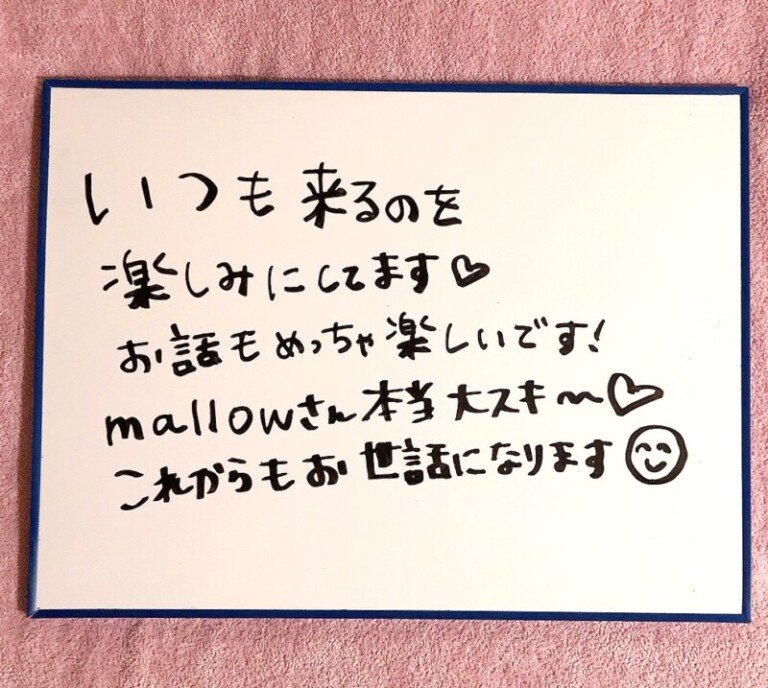 いつも来るのを
楽しみにしてます♡
お話もめっちゃ楽しいです!
mallowさん本当大スキ〜♡
これからもお世話になります😊